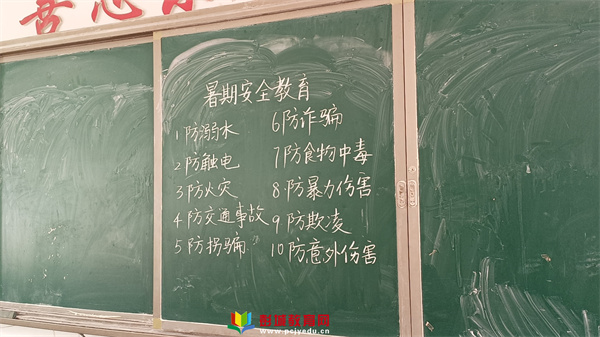 暑期安全教育
1防溺水
2防触电
3防火灾
4防交通事故
5防拐骗
6防诈骗
7防食物中毒
8防暴力伤害
9防欺凌
10防意外伤害
彭城教育网
www.pcjyedu.cn